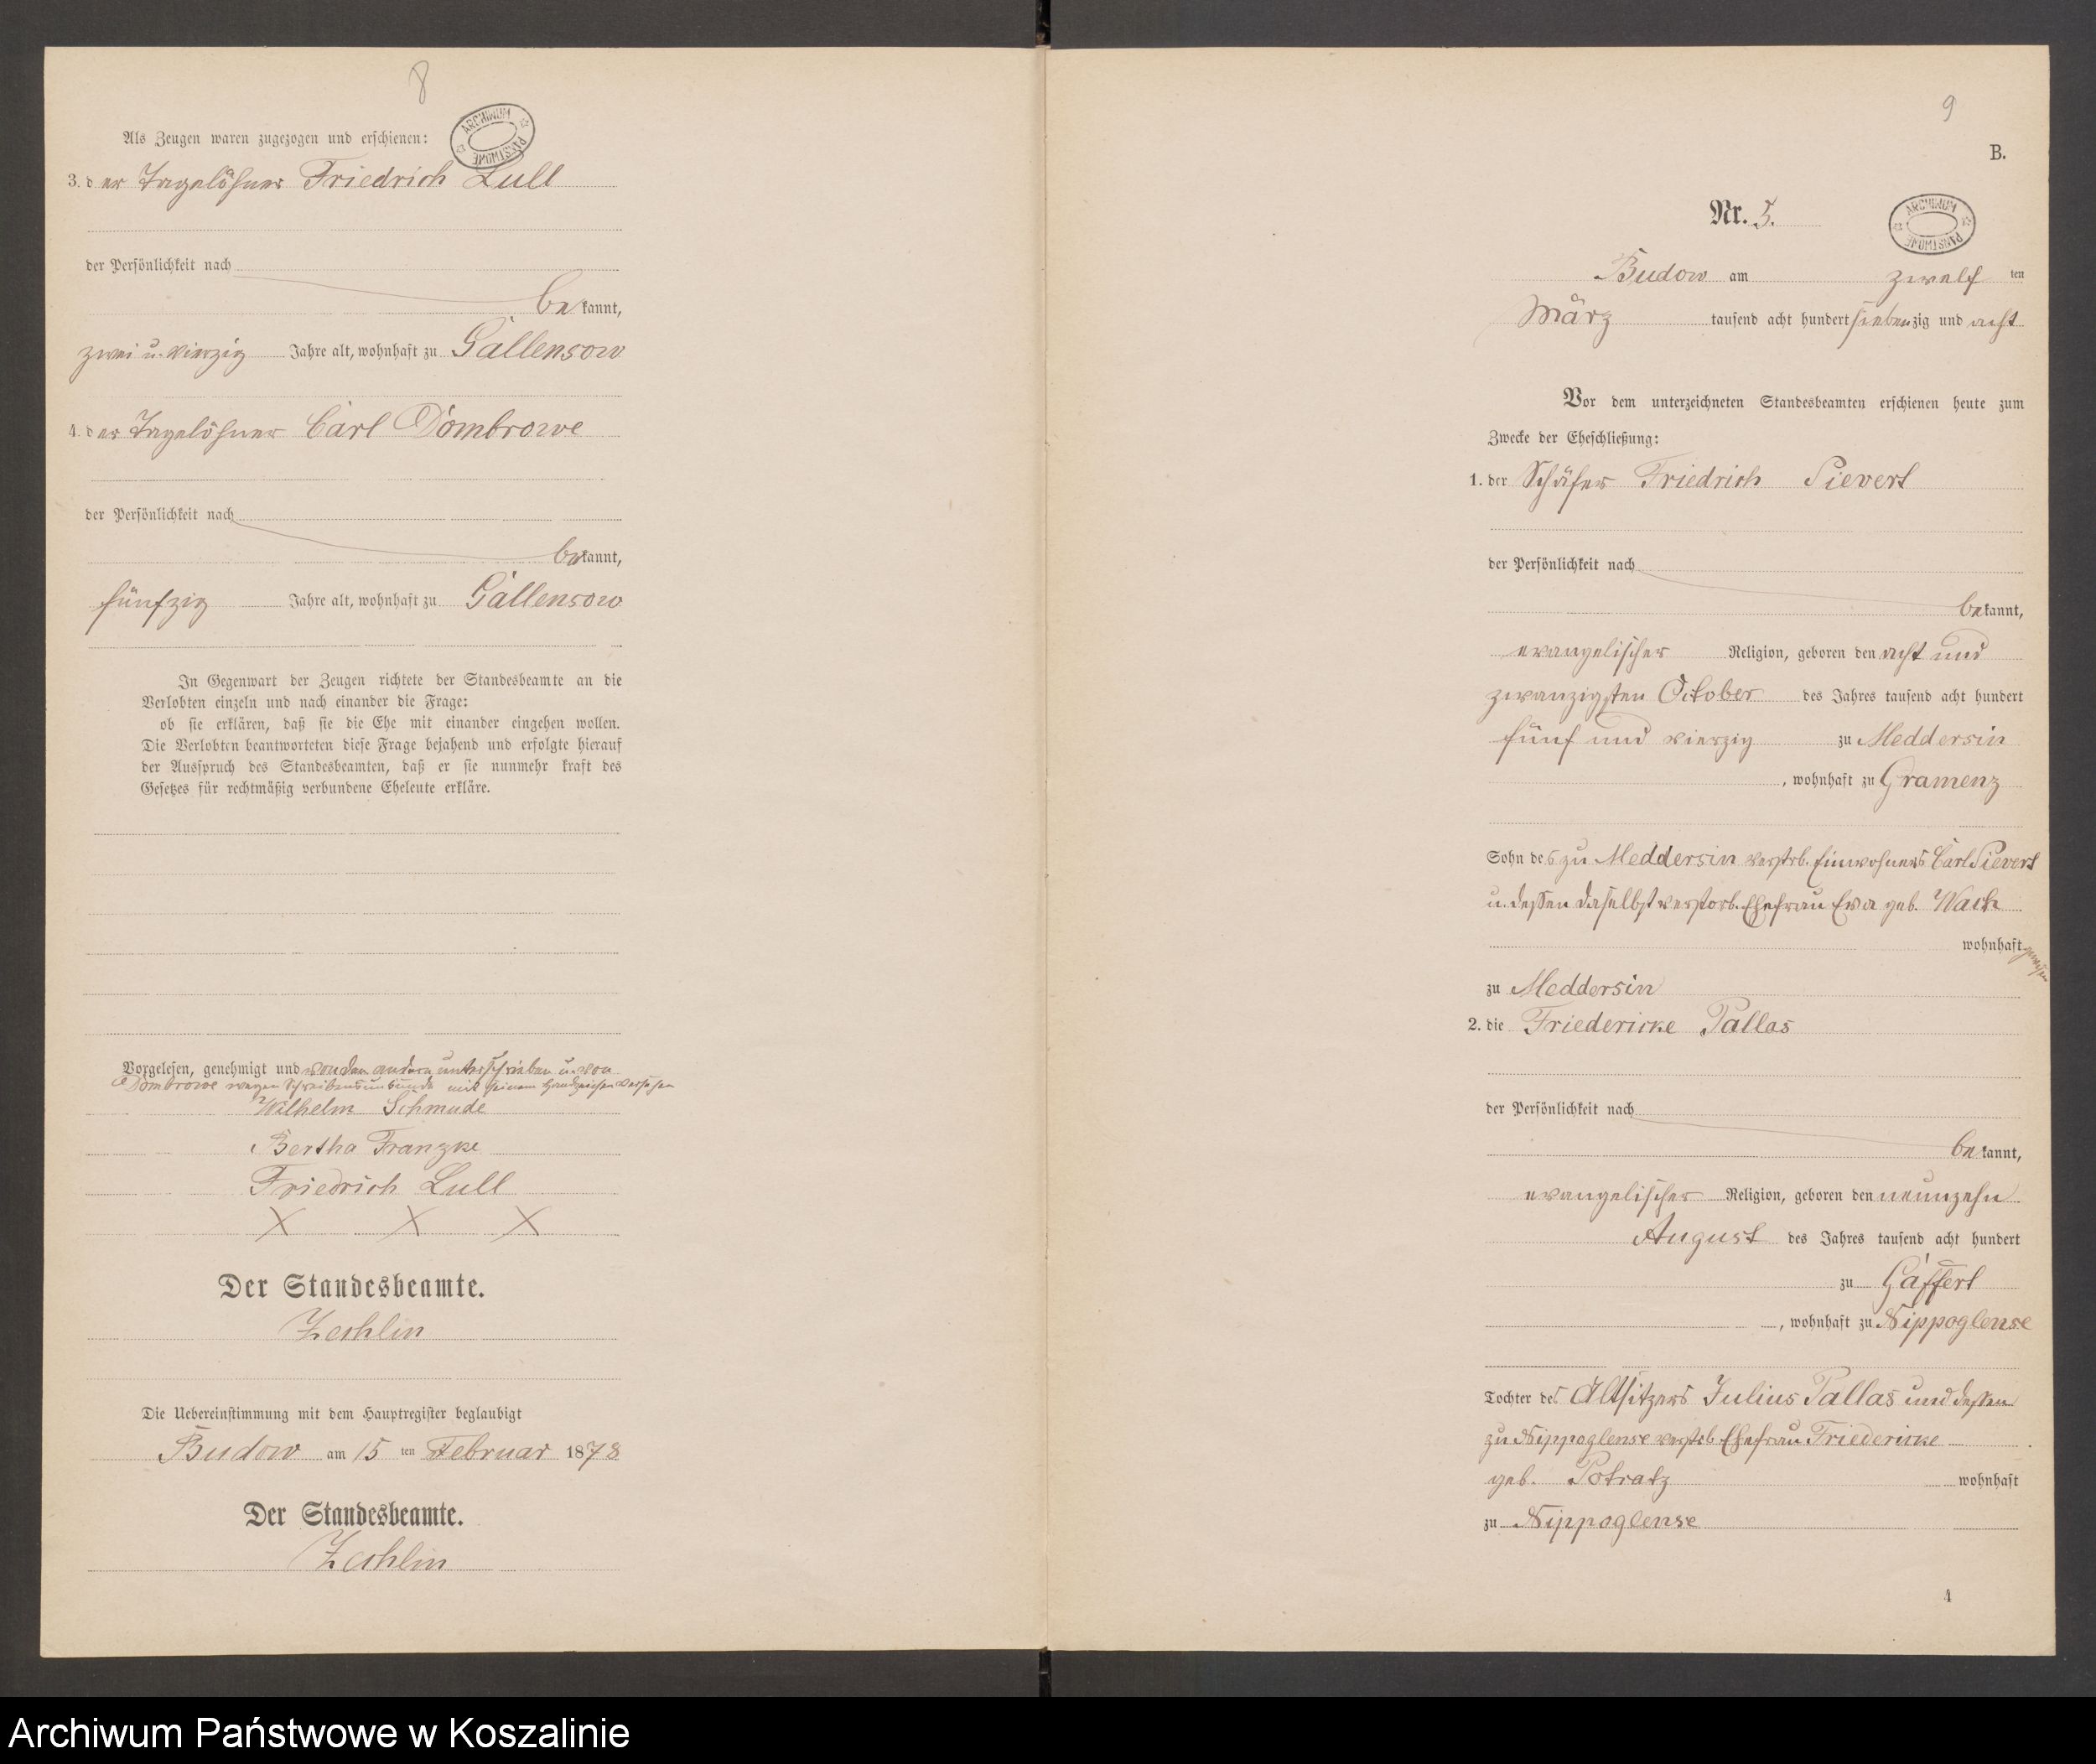 8
Als Zeugen waren zugezogen und erschienen:
ARCHIWUM PAŃSTWOWE
3. der Tagelöhner Friedrich Lull
der Persönlichkeit nach
bekannt,
zwei u. vierzig Jahre alt, wohnhaft zu Gallensow
4. der Tagelöhner Carl Dombrowe
der Persönlichkeit nach
bekannt,
fünfzig Jahre alt, wohnhaft zu Gallensow
In Gegenwart der Zeugen richtete der Standesbeamte an die
Verlobten einzeln und nach einander die Frage:
ob sie erklären, daß sie die Ehe mit einander eingehen wollen.
Die Verlobten beantworteten diese Frage bejahend und erfolgte hierauf
der Ausspruch des Standesbeamten, daß er sie nunmehr kraft des
Gesetzes für rechtmäßig verbundene Eheleute erkläre.
Vorgelesen, genehmigt und von den andern unterschrieben u. von
Dombrowe wegen Schreibensunkunde mit seinem Handzeichen versehen
Wilhelm Schmude
Bertha Franzke
Friedrich Lull
X X X
Der Standesbeamte.
Zechlin
Die Uebereinstimmung mit dem Hauptregister beglaubigt
Budow am 15 ten Februar 1878
Der Standesbeamte.
Zechlin
9
B.
Nr. 5.
ARCHIWUM PAŃSTWOWE
Budow am zwölf ten
März tausend acht hundert siebenzig und acht
Vor dem unterzeichneten Standesbeamten erschienen heute zum
Zwecke der Eheschließung:
1. der Schäfer Friedrich Sievert
der Persönlichkeit nach
bekannt,
evangelischer Religion, geboren den acht und
zwanzigsten October des Jahres tausend acht hundert
fünf und vierzig zu Meddersin
, wohnhaft zu Gramenz
Sohn des zu Meddersin verstrb. Einwohners Carl Sievert
u. dessen daselbst verstorb. Ehefrau Eva geb. Wach
wohnhaft gewesen
zu Meddersin
2. die Friedericke Pallas
der Persönlichkeit nach
bekannt,
evangelischer Religion, geboren den neunzehn
August des Jahres tausend acht hundert
zu Gaffert
, wohnhaft zu Nippoglense
Tochter des Altsitzers Julius Pallas und dessen
zu Nippoglense verstrb. Ehefrau Friedericke
geb. Potratz wohnhaft
zu Nippoglense
4
Archiwum Państwowe w Koszalinie